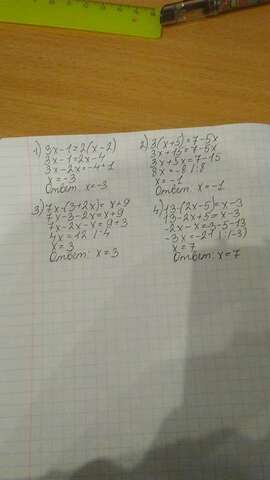 1) 3x-1=2(x-2)
3x-1=2x-4
3x-2x=-4+1
x=-3
Ответ: x=-3
2) 3(x+5)=7-5x
3x+15=7-5x
3x+5x=7-15
8x=-8 |:8
x=-1
Ответ: x=-1
3) 7x-(3+2x)=x+9
7x-3-2x=x+9
7x-2x-x=9+3
4x=12 |:4
x=3
Ответ: x=3
4) 13-(2x-5)=x-3
13-2x+5=x-3
-2x-x=-3-5-13
-3x=-21 |:(-3)
x=7
Ответ: x=7